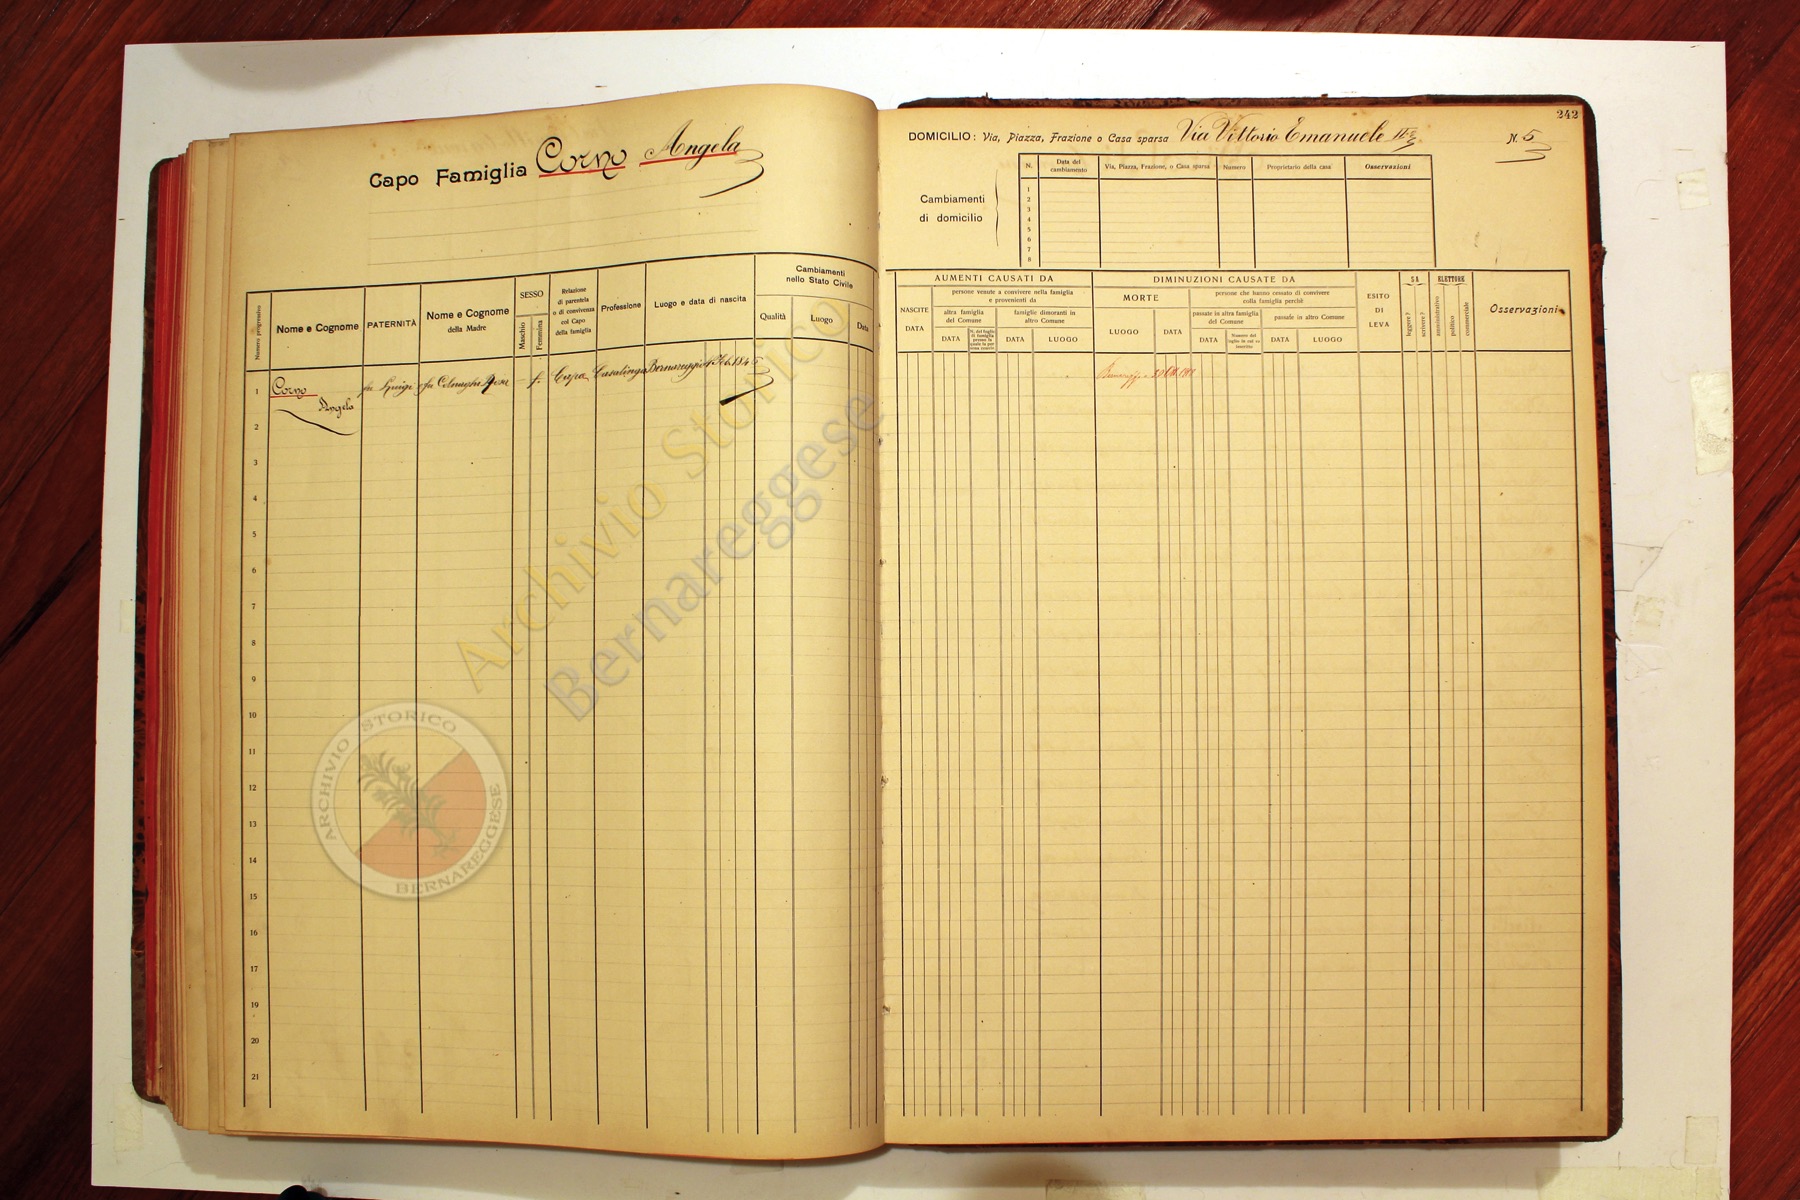 Capo Famiglia Corno Angela
Numero progressivo
Nome e Cognome
PATERNITÀ
Nome e Cognome
della Madre
SESSO
Maschio
Femmina
Relazione
di parentela
o di convivenza
col Capo
della famiglia
Professione
Luogo e data di nascita
Cambiamenti
nello Stato Civile
Qualità
Luogo
Data
1
Corno
Angela
fu Luigi
fu Colnaghi Rosa
f.
Capa
Casalinga
Bernareggio
2
3
4
5
6
7
8
9
10
11
12
13
14
15
16
17
19
20
21
242
DOMICILIO: Via, Piazza, Frazione o Casa sparsa Via Vittorio Emanuele II N. 5
Cambiamenti
di domicilio
N.
Data del
cambiamento
Via, Piazza, Frazione, o Casa sparsa
Numero
Proprietario della casa
Osservazioni
1
2
3
4
5
6
7
8
AUMENTI CAUSATI DA
NASCITE
DATA
persone venute a convivere nella famiglia
e provenienti da
altra famiglia
del Comune
DATA
famiglie dimoranti in
altro Comune
DATA
LUOGO
DIMINUZIONI CAUSATE DA
MORTE
LUOGO
DATA
persone che hanno cessato di convivere
colla famiglia perchè
passate in altra famiglia
del Comune
DATA
Numero del
foglio in cui va
inscritto
passate in altro Comune
DATA
LUOGO
ESITO
DI
LEVA
SA
leggere?
scrivere?
ELETTORE
amministrativo
politico
commerciale
Osservazioni
Archivio Storico
Bernareggese
ARCHIVIO STORICO
BERNAREGGESE